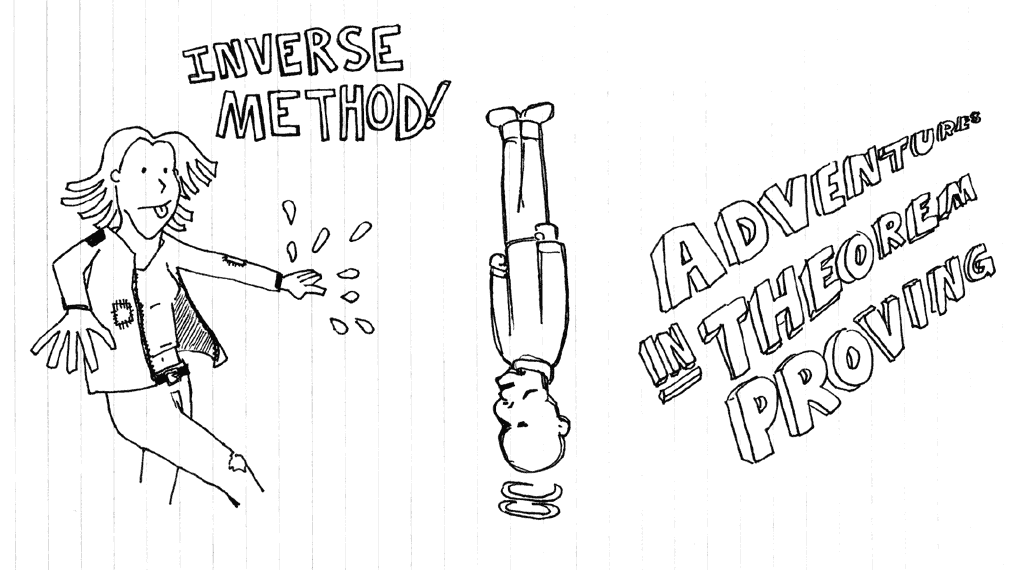 INVERSE
METHOD!
ADVENTURES
IN THEOREM
PROVING